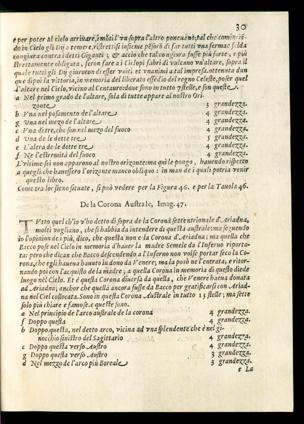 30
e per poter al cielo arrivare, molti il va sopra l'altro ponevano, tal che comincian-
do in Cielo gli Dij a temere, ristretti si insieme per far tutti una ferma, & salda
congiura contra detti Giganti; & acciò che tal congiura fusse più forte, e più
strettamente obligata, feron fare a i Ciclopi fabri di Vulcano un'altare, sopra il
quale tutti gli Dij giuroron di esser uniti et unanimi a tal impresa. ottenuta dun
que dipoi la vittoria, in memoria del liberato officio del regno Celeste, poser quel
l'altare nel Cielo, vicino al Centauro: dove sono in tutto 7. stelle, e son queste.
a Nel primo grado de l'altare, sola di tutte appare al nostro Ori-
zonte 3 grandezza.
b Una nel posamento de l'altare 4 grandezza.
g Una nel mezo de l'altare 4 grandezza.
c Una destra, che sta nel mezo del fuoco 4 grandezza.
d Una de le dette tre 4 grandezza.
e L'altra de le dette tre 4 grandezza.
f Ne l'estremità del fuoco 4 grandezza.
L'ultime sei non appaiono al nostro orizonte: ma qui le pongo, havendo rispetto
a quegli che havessero l'orizonte manco obliquo: in man de i quali potria venir
questo libro.
Come tra lor sieno situate, si può vedere per la Figura 46. e per la Tavola 46.
De la Corona Australe, Imag. 47.
TUtto quel ch'io v'ho detto di sopra de la Corona settentrionale d'Ariadna,
molti vogliano, che si habbia da intendere di questa australe: ma seguendo
io l'opinion de i più, dico, che questa non è la Corona d'Ariadna; ma quella che
Bacco pose nel Cielo in memoria d'haver la madre Semele da l'Inferno riporta-
ta: però che dicon che Bacco descendendo a l'Inferno non volse portar seco la Co
rona, che egli haveva havuto in dono da Venere, ma la posò ne l'entrata, e ritor-
nando poi con l'acquisto de la madre, a quella Corona in memoria di questo diede
luogo nel Cielo. Et è questa Corona diversa da quella, che Venere haveva donata
ad Ariadna; anchor che quella anchora fusse da Bacco per gratificarsi con Ariad
na nel Ciel collocata. Sono in questa Corona Australe in tutto 13 stelle; ma sette
solo più chiare e famose. e queste sono.
a Nel principio de l'arco australe de la corona 4 grandezza.
f Doppo questa 4 grandezza.
b Doppo questa, nel detto arco, vicina ad una splendente che è nel gi-
nocchio sinistro del Sagittario 4 grandezza.
c Doppo questa verso Austro 4 grandezza.
g Doppo questa verso Austro 3 grandezza.
d Nel mezo de l'arco più Boreale 3 grandezza.
e La